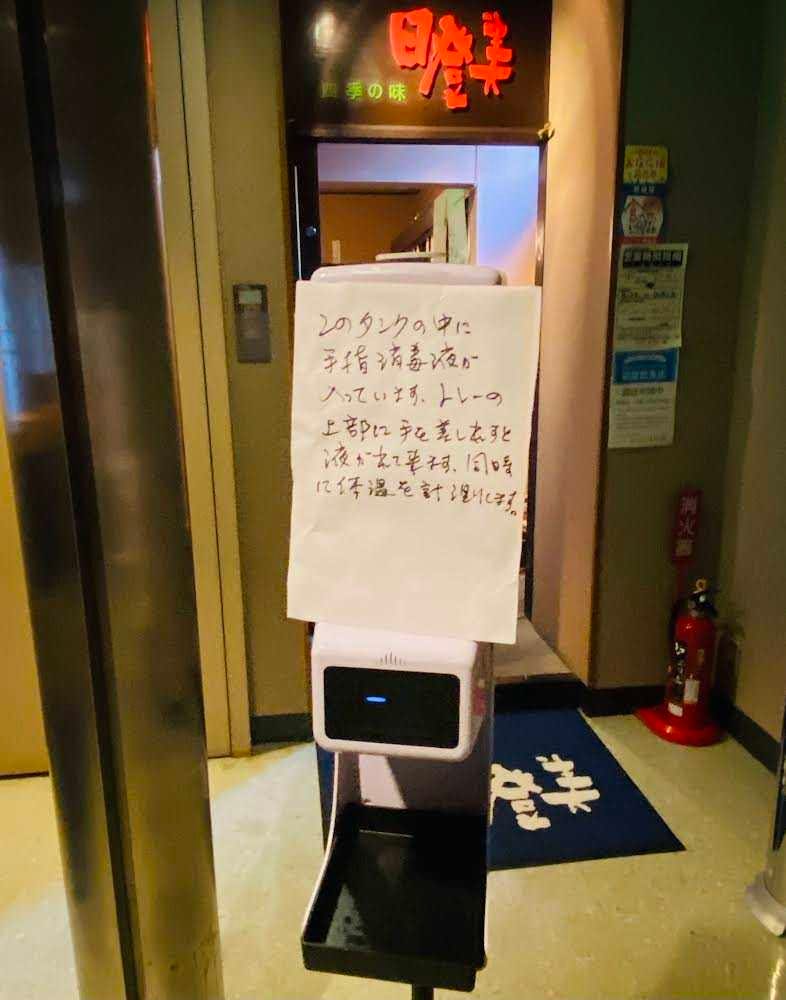 日登美
四季の味
このタンクの中に
手指消毒液が
入っています、トレーの
上部に手を差し出すと
液が出て来ます、同時
に体温を計測します。
消火器
日登美